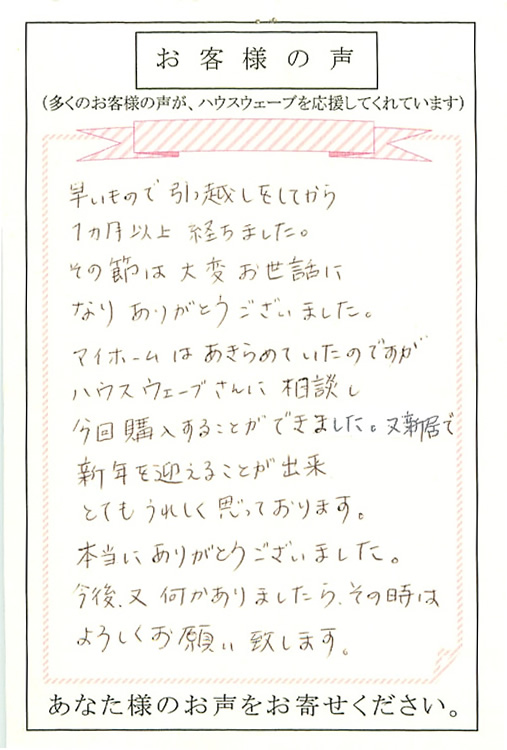 お客様の声
(多くのお客様の声が、ハウスウェーブを応援してくれています)
早いもので 引越しをしてから
1カ月以上 経ちました。
その節は 大変 お世話に
なり ありがとうございました。
マイホームは あきらめていたのですが
ハウスウェーブさんに 相談し
今回購入することができました。又新居で
新年を迎えることが出来
とてもうれしく思っております。
本当に ありがとうございました。
今後、又 何かありましたら、その時は
よろしくお願い致します。
あなた様のお声をお寄せください。